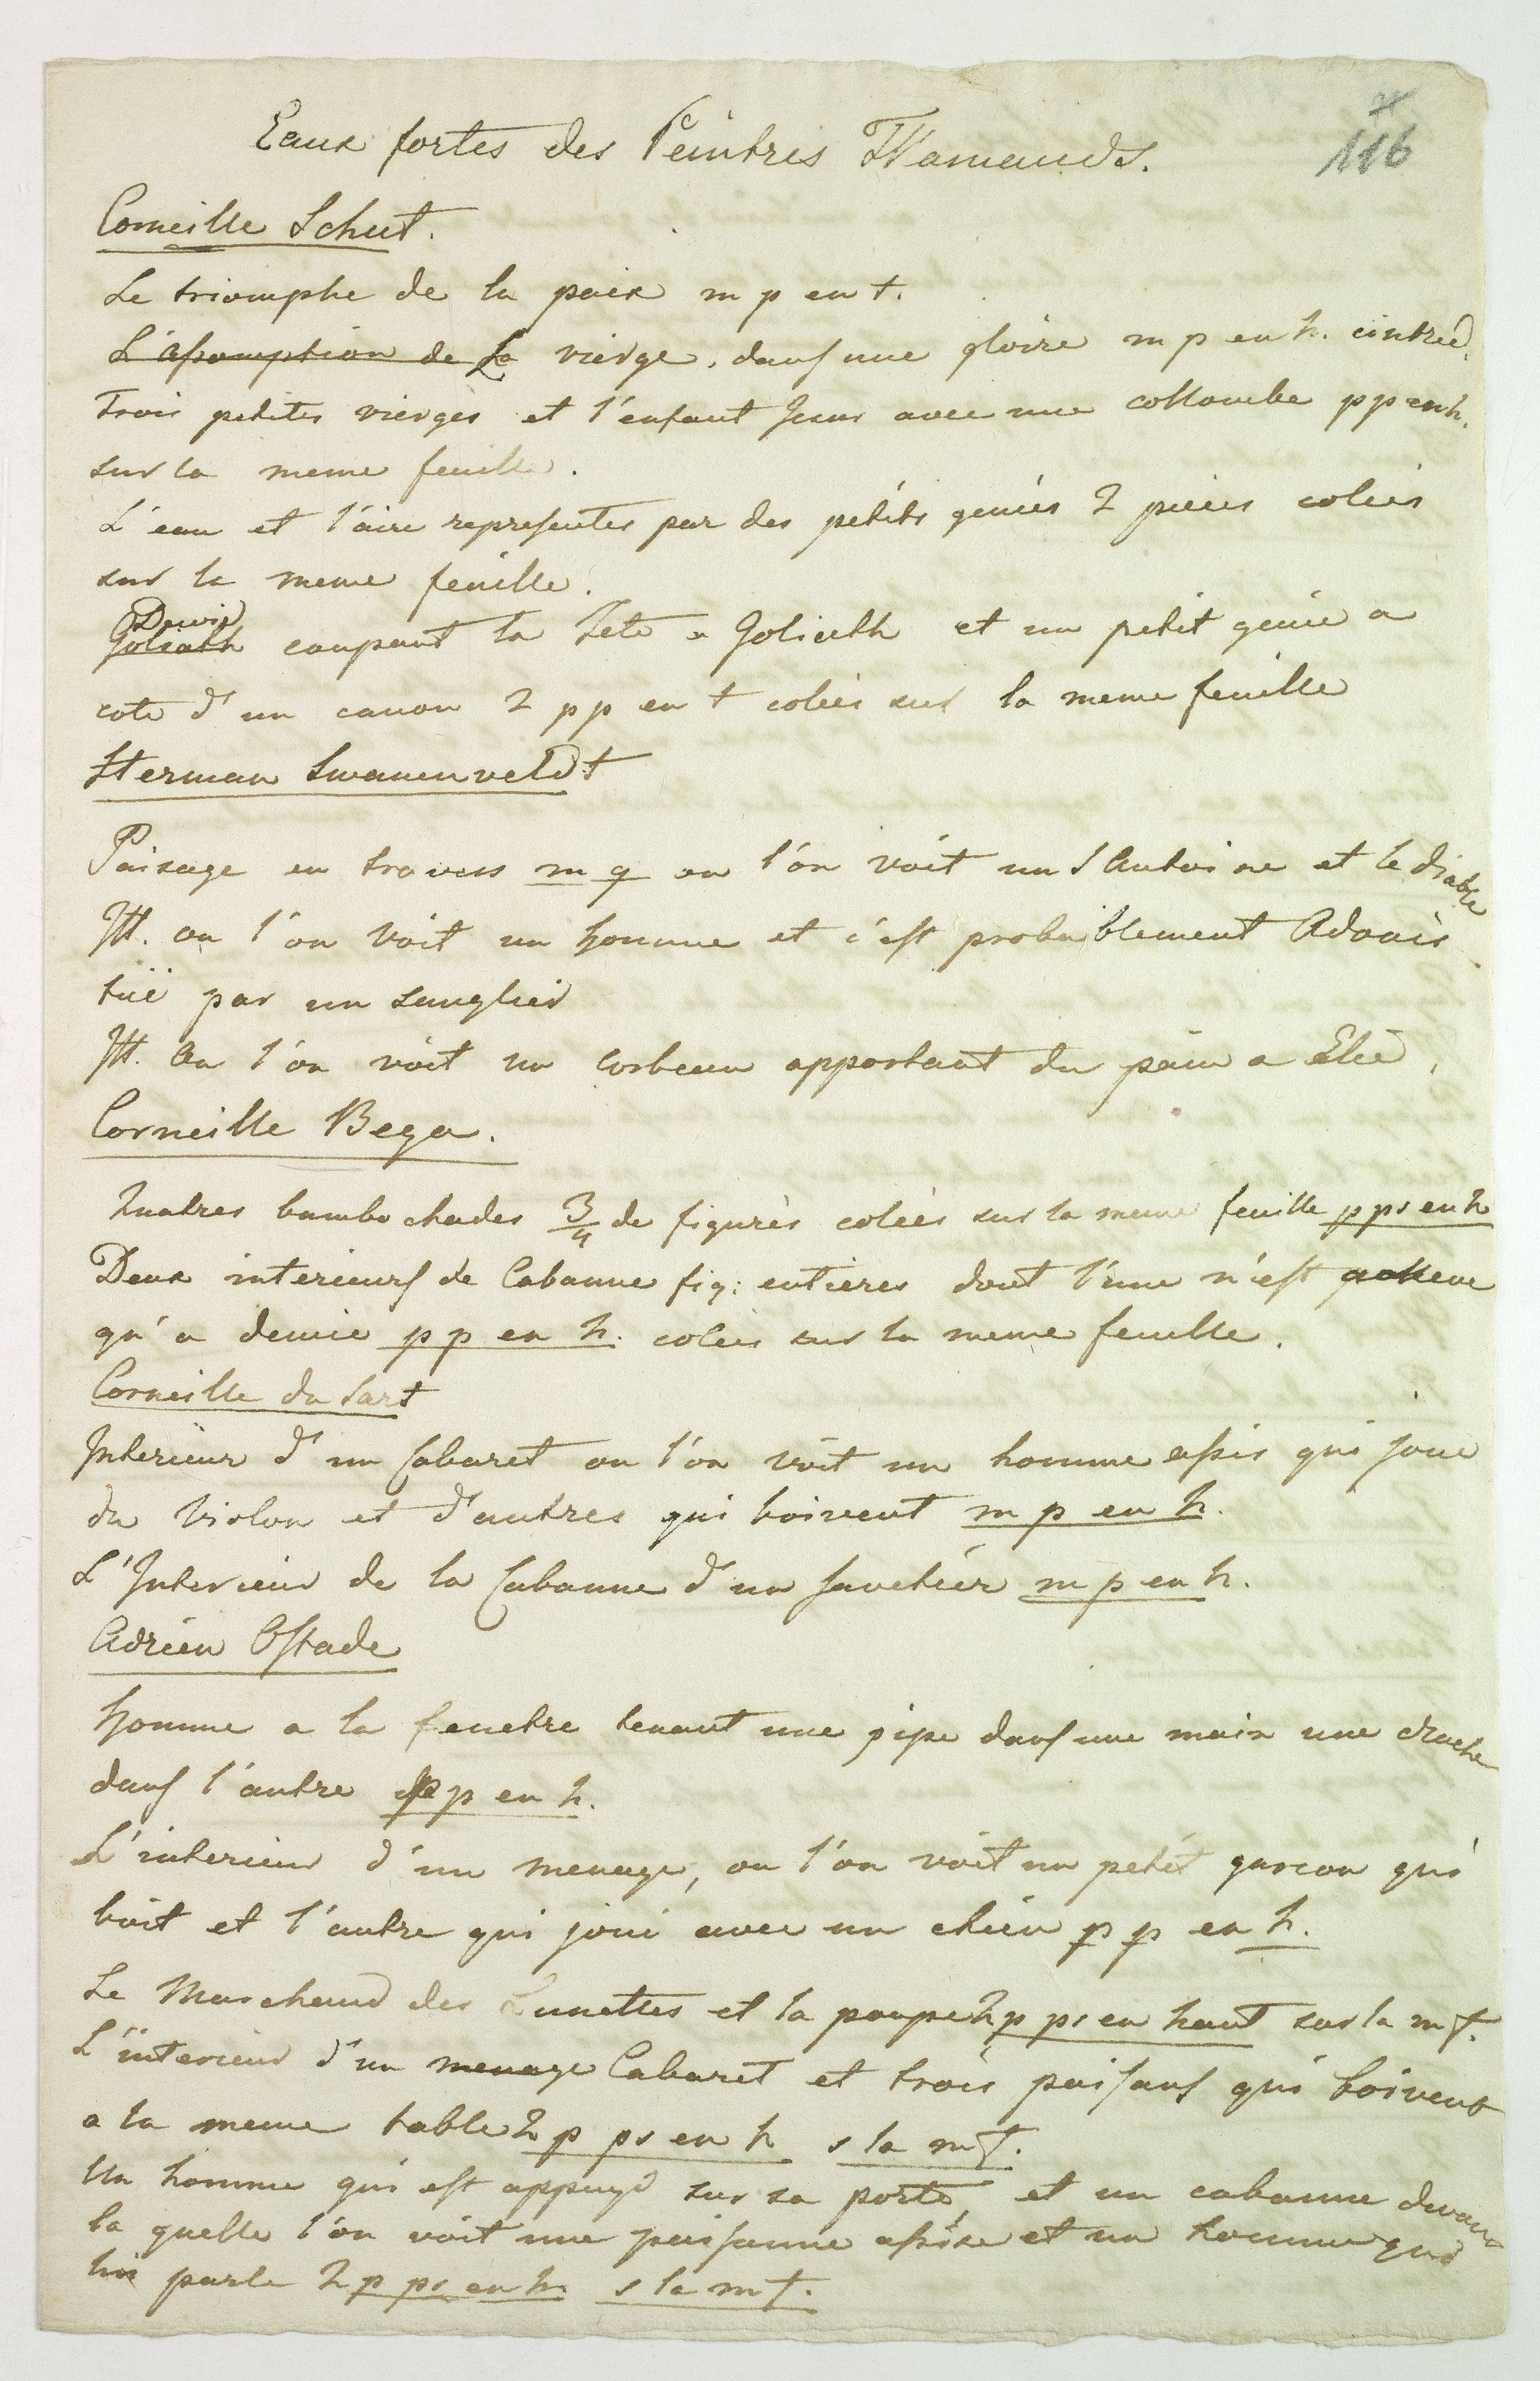 Eaux fortes des Peintres Flamands.
116
Corneille Schut.
Le triomphe de la paix m p en t.
L'assomption de La vierge. dans une gloire m p en h. cintreé.
Trois petites vierges et l'enfant Jesus avec une collombe pp en h.
sur la meme feuille.
L'eau et l'aire representes par des petits genies 2 pieces colées
sur la meme feuille.
David
Goliath coupant la Tete a Goliath et un petit genie a
coté d'un canon 2 pp en t colées sur la meme feuille
Herman Swanenveldt
Paisage en travers m q ou l'on voit un S Antoine et le diable
Itt. ou l'on voit un homme et c'est probablement Adonis
tüé par un sanglier
Itt. Ou l'on voit un corbeau apportant du pain a Elie.
Corneille Bega.
Quatres bambochades 3/4 de figures colées sur la meme feuille p ps en h
Deux interieurs de Cabanne fig: entieres dont l'une n'est acheve
qu'a demie p p en h. colées sur la meme feuille.
Corneille du Sart
Interieur d'un Cabaret ou l'on voit un homme assis qui joue
du Violon et d'autres qui boivent m p en h.
L'Interieur de la Cabanne d'un savetiér m p en h.
Adrien Ostade
Homme a la fenetre tenant une pipe dans une main une cruche
dans l'autre p p en h.
L'interieur d'un menage, ou l'on voit un petit garcon qui
boit et l'autre qui joue avec un chien p p en h.
Le Marchand des Lunettes et la poupe 2 p ps en haut sur la m f.
L'interieur d'un menage Cabaret et trois paisans qui boivent
a la meme table 2 p ps en h s la m f.
Un homme qui est appuyé sur sa porte, et un cabanne devant
la quelle l'on voit une paisanne assise et un homme qui
lui parle 2 p ps en h. s la m f.